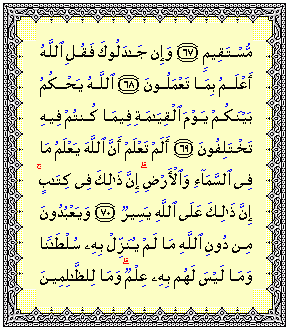 مُّسۡتَقِيمٍ ٦٧ وَإِن جَٰدَلُوكَ فَقُلِ ٱللَّهُ
أَعۡلَمُ بِمَا تَعۡمَلُونَ ٦٨ ٱللَّهُ يَحۡكُمُ
بَيۡنَكُمۡ يَوۡمَ ٱلۡقِيَٰمَةِ فِيمَا كُنتُمۡ فِيهِ
تَخۡتَلِفُونَ ٦٩ أَلَمۡ تَعۡلَمۡ أَنَّ ٱللَّهَ يَعۡلَمُ مَا
فِى ٱلسَّمَآءِ وَٱلۡأَرۡضِۚ إِنَّ ذَٰلِكَ فِى كِتَٰبٍۚ
إِنَّ ذَٰلِكَ عَلَى ٱللَّهِ يَسِيرٌ ٧٠ وَيَعۡبُدُونَ
مِن دُونِ ٱللَّهِ مَا لَمۡ يُنَزِّلۡ بِهِۦ سُلۡطَٰنًا
وَمَا لَيۡسَ لَهُم بِهِۦ عِلۡمٌۗ وَمَا لِلظَّٰلِمِينَ